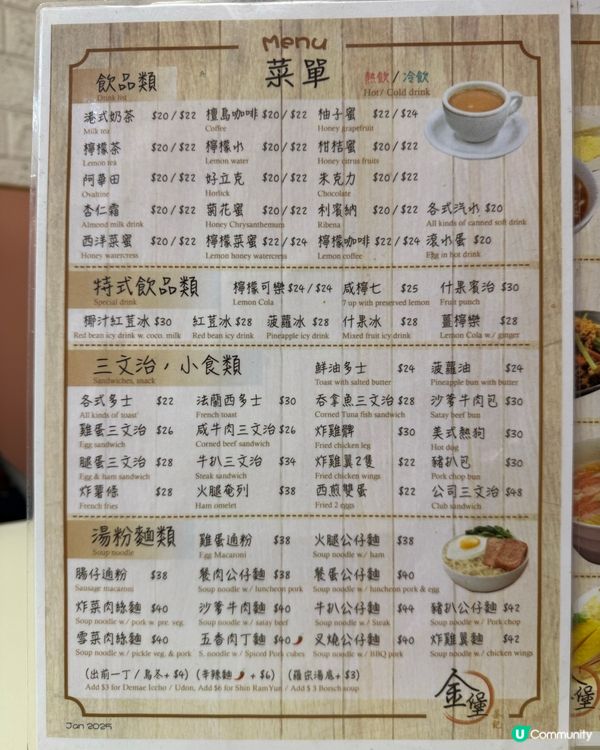 Menu
菜單
飲品類
Drink list
熱飲/冷飲
Hot/ Cold drink
港式奶茶 $20/$22 檀島咖啡 $20/$22 柚子蜜 $22/$24
Milk tea Coffee Honey grapefruit
檸檬茶 $20/$22 檸檬水 $20/$22 柑桔蜜 $20/$22
Lemon tea Lemon water Honey citrus fruits
阿華田 $20/$22 好立克 $20/$22 朱克力 $20/$22
Ovaltine Horlick Chocolate
杏仁霜 $20/$22 菊花蜜 $20/$22 利賓納 $20/$22 各式汽水 $20
Almond milk drink Honey Chrysanthemum Ribena All kinds of canned soft drink
西洋菜蜜 $20/$22 檸檬菜蜜 $22/$24 檸檬咖啡 $22/$24 滾水蛋 $20
Honey watercress Lemon honey watercress Lemon coffee Egg in hot drink
特式飲品類 檸檬可樂 $24/$24 咸檸七 $25 什果賓治 $30
Special drink Lemon Cola 7 up with preserved lemon Fruit punch
椰汁紅荳冰 $30 紅荳冰 $28 菠蘿冰 $28 什果冰 $28 薑檸樂 $28
Red bean icy drink w. coco. milk Red bean icy drink Pineapple icy drink Mixed fruit icy drink Lemon Cola w/ ginger
三文治，小食類 鮮油多士 $24 菠蘿油 $24
Sandwiches, snack Toast with salted butter Pineapple bun with butter
各式多士 $22 法蘭西多士 $30 吞拿魚三文治 $28 沙爹牛肉包 $30
All kinds of toast French toast Corned Tuna fish sandwich Satay beef bun
雞蛋三文治 $26 咸牛肉三文治 $26 炸雞髀 $30 美式熱狗 $30
Egg sandwich Corned beef sandwich Fried chicken leg Hot dog
腿蛋三文治 $28 牛扒三文治 $34 炸雞翼2隻 $22 豬扒包 $30
Egg & ham sandwich Steak sandwich Fried chicken wings Pork chop bun
炸薯條 $28 火腿奄列 $38 西煎雙蛋 $22 公司三文治 $48
French fries Ham omelet Fried 2 eggs Club sandwich
湯粉麵類 雞蛋通粉 $38 火腿公仔麵 $38
Soup noodle Egg Macaroni Soup noodle w/ ham
腸仔通粉 $38 餐肉公仔麵 $38 餐蛋公仔麵 $40
Sausage macaroni Soup noodle w/ luncheon pork Soup noodle w/ luncheon pork & egg
炸菜肉絲麵 $40 沙爹牛肉麵 $40 牛扒公仔麵 $44 豬扒公仔麵 $42
Soup noodle w/ pork w. pre. veg. Soup noodle w/ satay beef Soup noodle w/ Steak Soup noodle w/ Pork chop
雪菜肉絲麵 $40 五香肉丁麵 $40 叉燒公仔麵 $40 炸雞翼麵 $42
Soup noodle w/ pickle veg. & pork S. noodle w/ Spiced Pork cubes Soup noodle w/ BBQ pork Soup noodle w/ chicken wings
(出前一丁/烏冬+ $4) (辛辣麵 + $6) (羅宗湯底+ $3)
Add $3 for Demae Iccho / Udon, Add $6 for Shin Ram Yun / Add 3 Borsch soup
金堡
Jan 2025
U Community